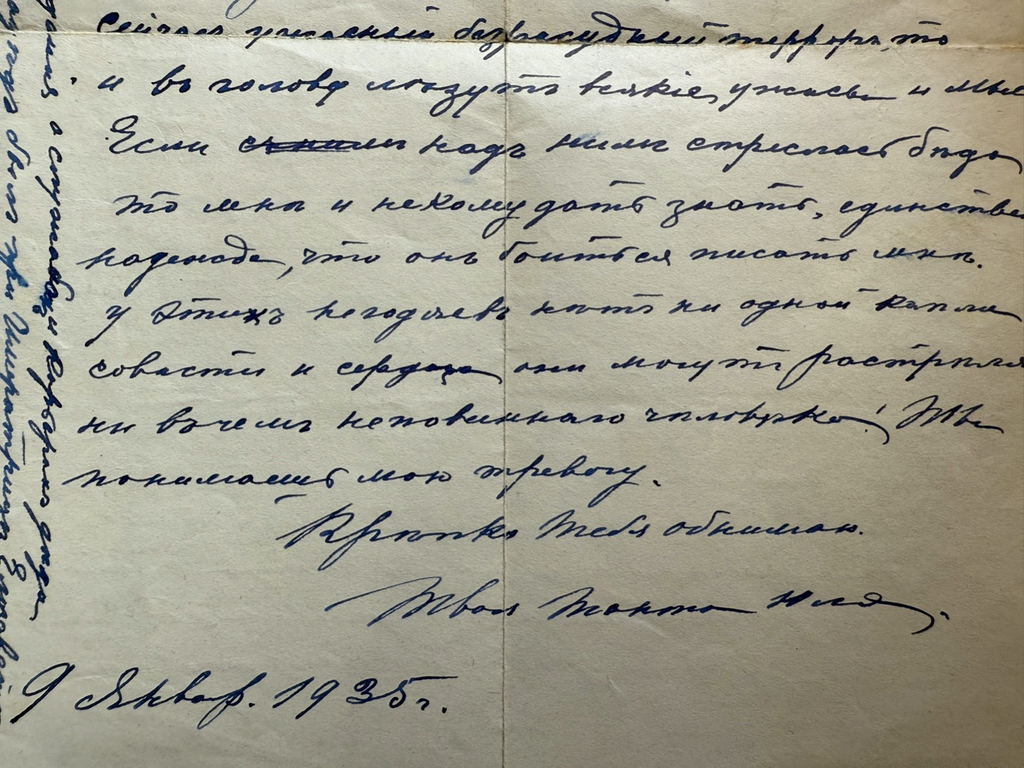 сейчас ужасный безразсудный террор, то
и въ голову лѣзутъ всякіе ужасы и мы
Если съ ними надъ ними стряслась бѣда
то мнѣ и некому дать знать, единстве
надежда, что онъ боиться писать мнѣ.
у этихъ негодяевъ нѣтъ ни одной капли
совѣсти и сердца они могутъ растрѣля
ни въ чемъ неповиннаго человѣка! Ты
понимаешь мою тревогу.
Крѣпко Тебя обнимаю.
Твоя Танта Юля.
9 Январ. 1935 г.
а служ
былъ при Императрица